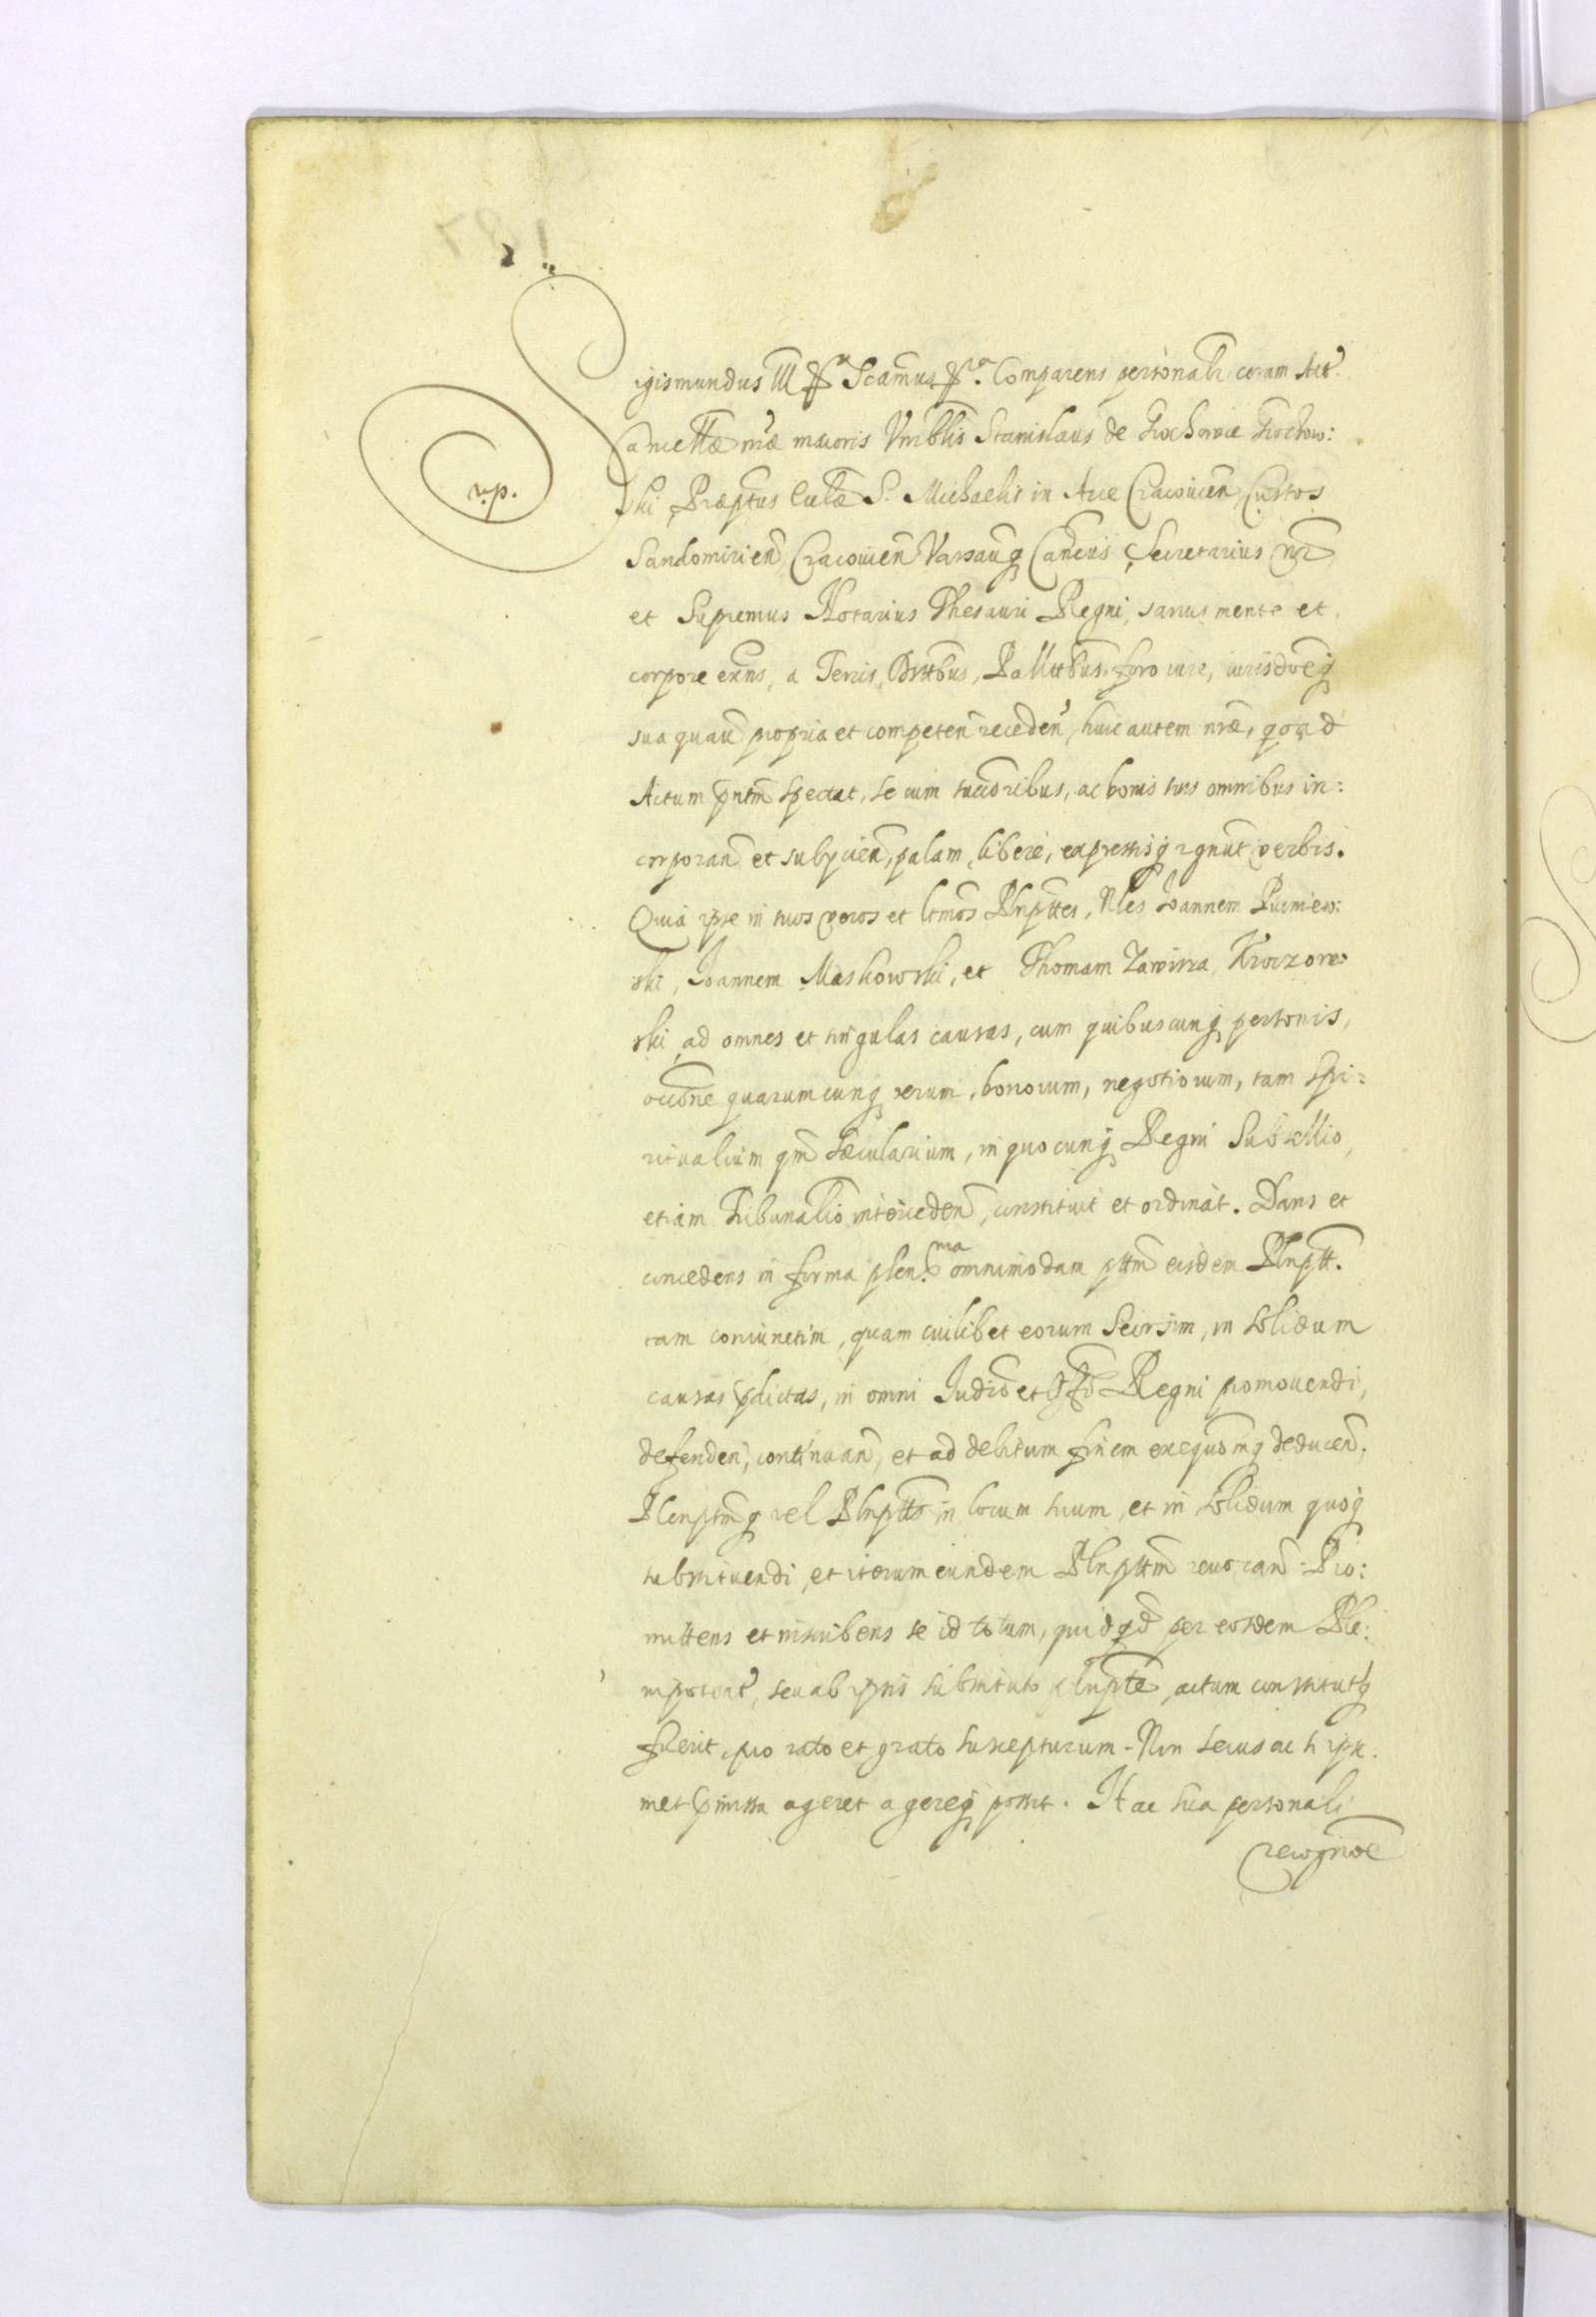 Sigismundus III &c Scãmus &c. Comparens personalr coram Act.
Cancellæ nræ maioris Vnrblis Stanislaus de Grochowce Grochow:
ski Præptus Eccliæ S. Michaelis in Arce Cracouien Custos
Sandomirien Cracouien Varsauq Cancus, Secretarius nr
et Supremus Notarius Thesauri Regni, sanus mente et
corpore exns, a Terris, Drttbus, Pallttbus, foro iure, iurisdoneq
sua quavi propria et competen receden, huic autem nræ, quoad
Actum pntm spectat, se cum succoribus, ac bonis suis omnibus in:
corporan et subycien, palam, libere, expressisq rgnuit verbis.
Quia ipse in suos veros et ltmos Plnpttes, Nles Ioannem
ski, Ioannem Maskowski, et Thomam Zawisza
ski, ad omnes et singulas causas, cum quibuscunq personis,
occone quarumcunq rerum, bonorum, negotiorum, tam Spi:
ritualium qm Sæcularium, in quocunq Regni Subsellio,
etiam Tribunalio interceden, constituit et ordinat. Dans et
concedens in forma plen.ma omnimodam pttm eisdem Plnptt.
tam coniunctim, quam cuilibet eorum Seorsim, in solidum
causas pdictas, in omni Iudicio et Offo Regni promouendi,
defenden, continuan, et ad debitum finem exequonmq deducen,
Plenptmq vel Plnptts in locum suum, et in solidum quoq
substituendi, et iterum eundem Plnpttm reuocan. Pro:
mittens et inscribens se id totum, quidqd per eosdem Ple:
nipotent, seu ab ipsis substituto plnpte, actum constitutq
fuerit, pro rato et grato suscepturum. Non secus ac si ipse
met pmissa ageret agereq posset. Hac sua personali
recognoe